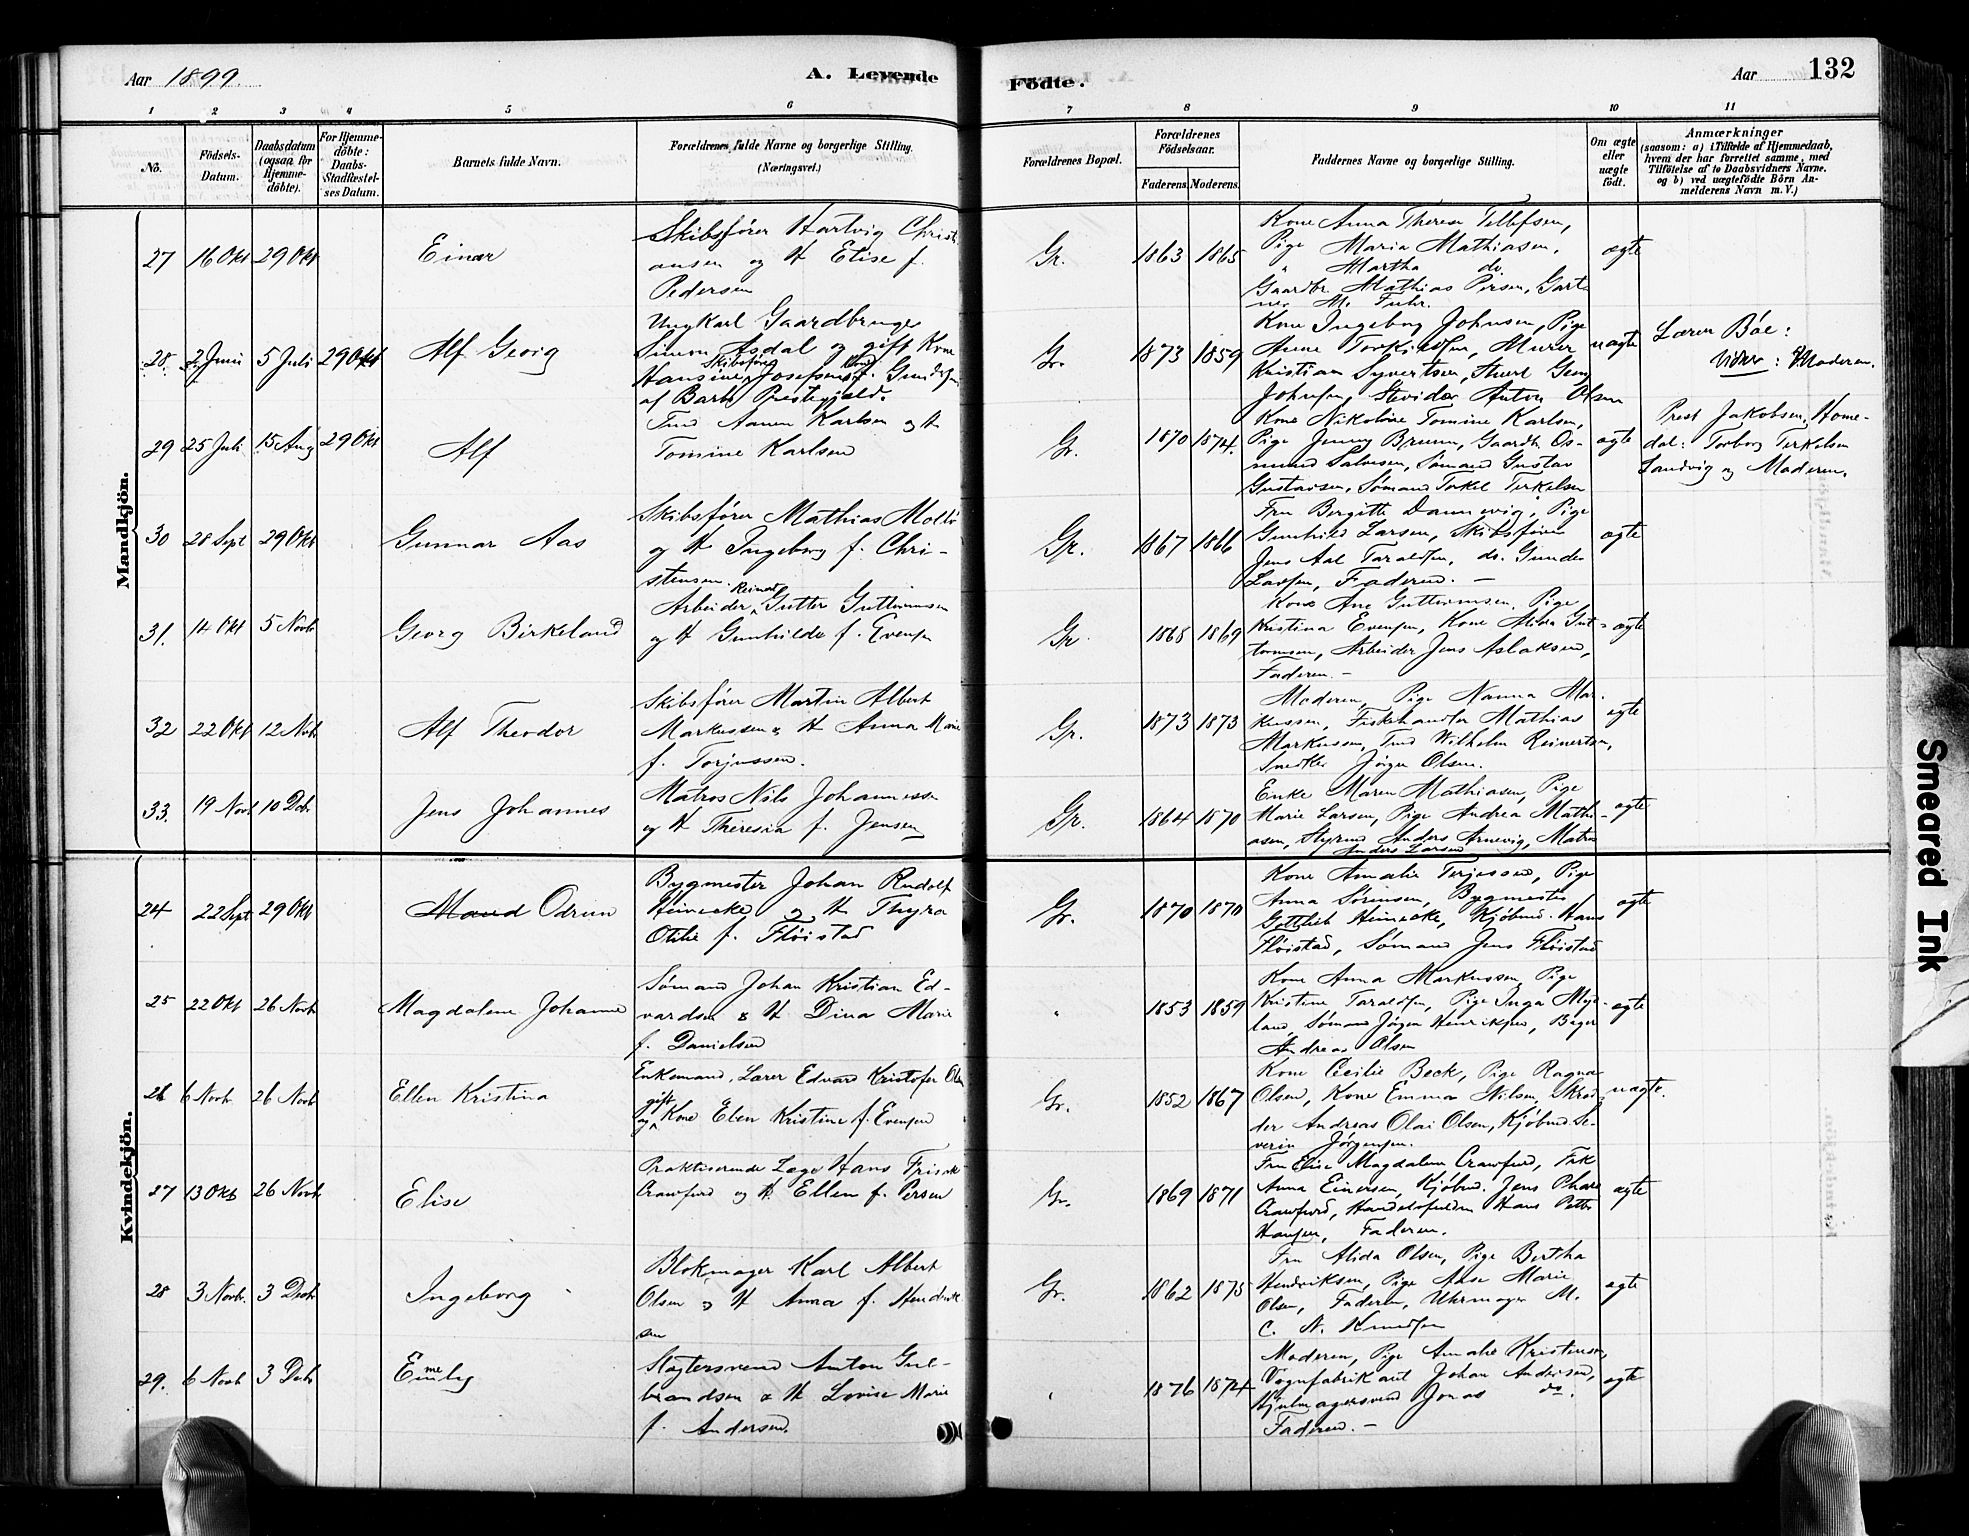 Aar 1899.
A. Levende
Födte.
Aar
132
1 2 3 4 5 6 7 8 9 10 11
No.
Födsels-
Datum.
Daabsdatum
(ogsaa for
Hjemme-
döbte).
For Hjemme-
döbte:
Daabs-
Stadfæstel-
ses Datum.
Barnets fulde Navn.
Forældrenes fulde Navne og borgerlige Stilling.
(Næringsvei.)
Forældrenes Bopæl.
Forældrenes
Födselsaar.
Faderens.
Moderens.
Faddernes Navne og borgerlige Stilling.
Om ægte
eller
uægte
födt.
Anmærkninger
(saasom: a) i Tilfælde af Hjemmedaab,
hvem der har forrettet samme, med
Tilföielse af to Daabsvidners Navne.
og b) ved uægtefödte Börn An-
melderens Navn m. V.)
Mandkjön.
27 16 Okt 29 Okt Einar
Skibsfører Hartvig Christi
ansen og H Elise f.
Pedersen
Gr. 1863 1865
Kone Anna Therese Tellefsen,
Pige Maria Mathiasen,
" Martha do.
Gaardbr. Mathias Persen, Gart
ner M. Fuhr.
ægte
28. 2 Juni 5 Juli 29 Okt Alf Georg
Ungkarl Gaardbruger
Simon Asdal og gift Kone
Hansine Josefsen f. Gunders
af Barbu Prestegjæld.
Gr. 1873 1859
Kone Ingeborg Johnsen, Pige
Anne Torkildsen, Murer
Kristian Syvertsen, Georg
Johnsen, Anton Olsen
uægte
Lærer Bøe:
Vidner: Moderen.
29 25 Juli 15 Aug 29 Okt Alf
Tmd Aanen Karlsen og H
Tomine Karlsen
Gr. 1870 1874.
Kone Nikoline Tomine Karlsen,
Pige Jenny Bruun, Gaardb. Os-
mund Salvesen, Sømand Gustav
Gustavsen, Sømand Torkel Terkelsen
ægte
Prest Jakobsen, Home-
dal: Torborg Terkelsen
Sandvig og Moderen.
30 28 Sept 29 Okt Gunnar Aas
Skibsfører Mathias Moltu
og H Ingeborg f. Chri-
stensen.
Gr. 1867 1866
Fru Bergitte Dannevig, Pige
Gunhild Larsen, Skibsfører
Jens Aal Taraldsen, do. Gunder
Larsen, Faderen. —
ægte
31. 14 Okt 5 Novb Georg Birkeland
Arbeider Gutter Guttormsen
og H Gunhilde f. Evensen
Gr 1868 1869
Kone Ane Guttormsen, Pige
Kristina Evensen, Kone Alida Gut-
tormsen, Arbeider Jens Aslaksen,
Faderen. —
ægte
32 22 Okt 12 Novb Alf Theodor
Skibsfører Martin Albert
Markussen & H Anna Marie
f. Torjussen.
Gr. 1873 1873
Moderen, Pige Nanna Mar-
kussen, Fiskehandler Mathias
Markussen, Tmd Wilhelm Reinertsen,
Snedker Jørgen Olsen.
ægte
33. 19 Novb 10 Dcb. Jens Johannes
Matros Nils Johannessen
og H Theresia f. Jensen
Gr. 1864 1870
Enke Maren Mathiasen, Pige
Marie Larsen, Pige Andrea Mathi-
asen, Styrmd Anders Arnevig, Matros
Anders Larsen
ægte
Kvindekjön.
24 22 Sept 29 Okt Maud Odrun
Bygmester Johan Rudolf
Heinecke og H Thyra
Otilie f. Fløistad
Gr. 1870 1870
Kone Amalie Terjesen, Pige
Anna Sørensen, Bygmester
Gottlieb Heinecke, Kjøbmd. Hans
Fløistad, Sømand Jens Fløistad
ægte
25 22 Okt 26 Novb. Magdalene Johanne
Sømand Johan Kristian Ed-
vardsen & H Dina Marie
f. Danielsen
" 1853 1859
Kone Anna Markussen, Pige
Kristine Taraldsen, Pige Inga Myr-
land, Sømand Jørgen Henriksen, Bager
Andreas Olsen
ægte
26 6 Novb. 26 Novb Ellen Kristina
Enkemand, Lærer Edvard Kristofer Olsen
og gift Kone Elen Kristine f. Evensen
Gr. 1852 1867
Kone Cecilie Beck, Pige Ragna
Olsen, Kone Emma Nilsen, Skræd-
der Andreas Olai Olsen, Kjøbmd Se-
verin Jørgensen.
uægte.
27 13 Okt 26 Novb. Elise
Praktiserende Læge Hans Frisak
Crawfurd og H. Ellen f. Persen
Gr. 1869 1871
Fru Elise Magdalene Crawfurd, Frk
Anna Einersen, Kjøbmd. Jens
Crawfurd, Hans Petter
Hansen, Faderen.
ægte
28 3 Novb. 3 Decb. Ingeborg
Blokmager Karl Albert
Olsen og H Anna f. Hendrik
sen
Gr. 1862 1875
Fru Alida Olsen, Pige Bertha
Hendriksen, Pige Aase Marie
Olsen, Faderen, Uhrmager M.
C. N. Knudsen
ægte
29. 6 Novb 3 Dcb Emely
me
Slagtersvend Anton Gul-
brandsen & H Lovise Marie
f. Andersen.
" 1876 1874
Moderen, Pige Amalie Kristensen,
Vognfabrikant Johan Andersen,
Hjulmagersvend Jonas do.
Faderen. —
ægte
Smeared Ink